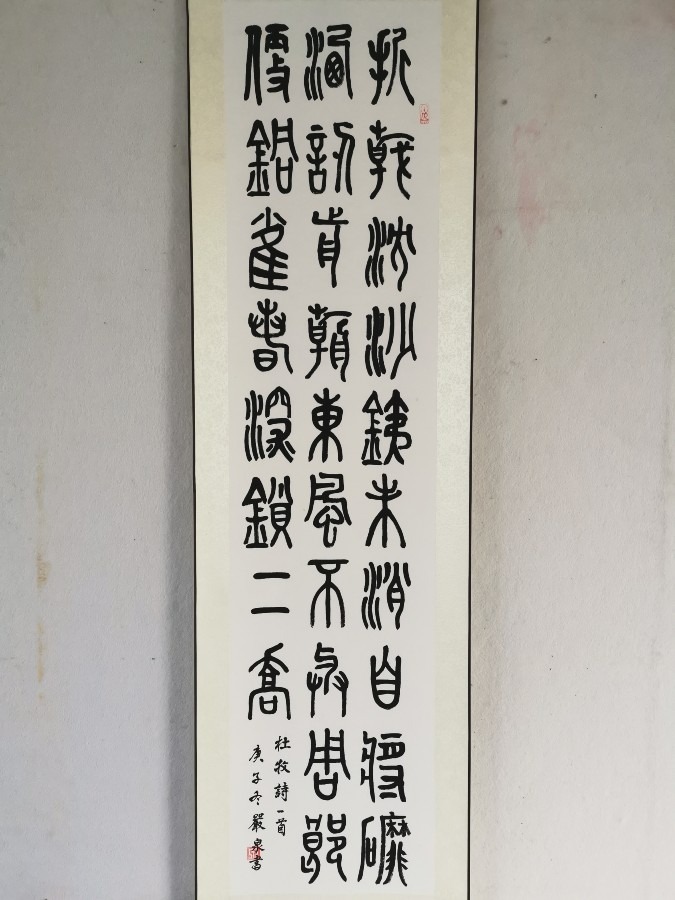 折戟沈沙銕未消自將䃺
洒訒前朝東風不與周郎
便銅雀春深鎖二喬
杜牧詩一首
庚子冬嚴泉書